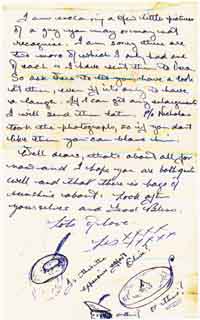 I am enclosing a few little pictures
of a guy you may or may not
recognise. I am sorry there are
two more of which I only had one
of each so I have sent them to Vera
So ask Vera to let you have a look
at them, even if it's only to have
a laugh. If I can get any enlargement
I will send them later. Mr Nicholas
took the photographs, so if you don't
like them you can blame him.
Well dears, that's about all for
now and I hope you are both quite
well and that there is bags of
sunshine about. Look after
yourselves and God Bless.
Lots of love
Les xxxx
Is this the
opposing effort
Eileen?
or this!!
or this!!